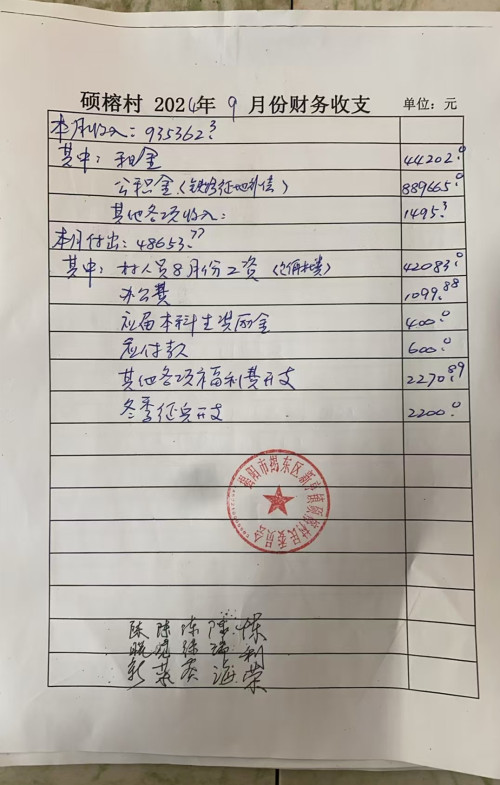 硕榕村 2024年 9 月份财务收支 单位：元
本月收入：935362.3
其中：租金 44202.0
公积金（铁路征地补偿） 889665.0
其他各项收入： 1495.3
本月付出：48653.77
其中：村人员8月份工资 42083.0
办公费 1099.88
应届本科生奖励金 400.0
应付款 600.0
其他各项福利费开支 2270.89
冬季征兵开支 2200.0
揭阳市揭东区新亨镇硕榕村民委员会